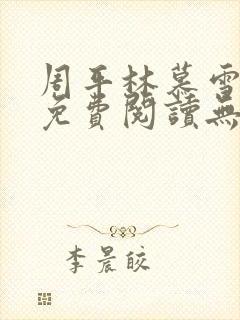 周平林慕雪
免費閱讀無
李晨皎